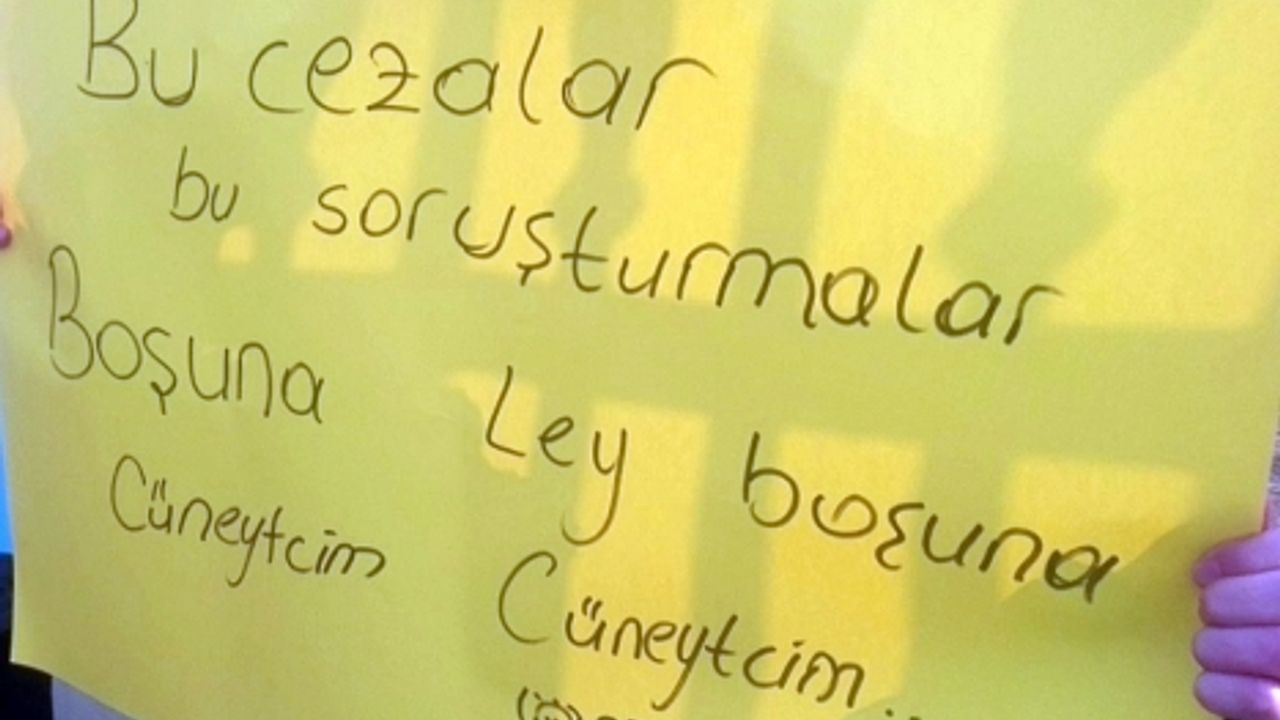 Bu cezalar
bu soruşturmalar
Boşuna Ley boşuna
Cüneytcim Cüneytcim